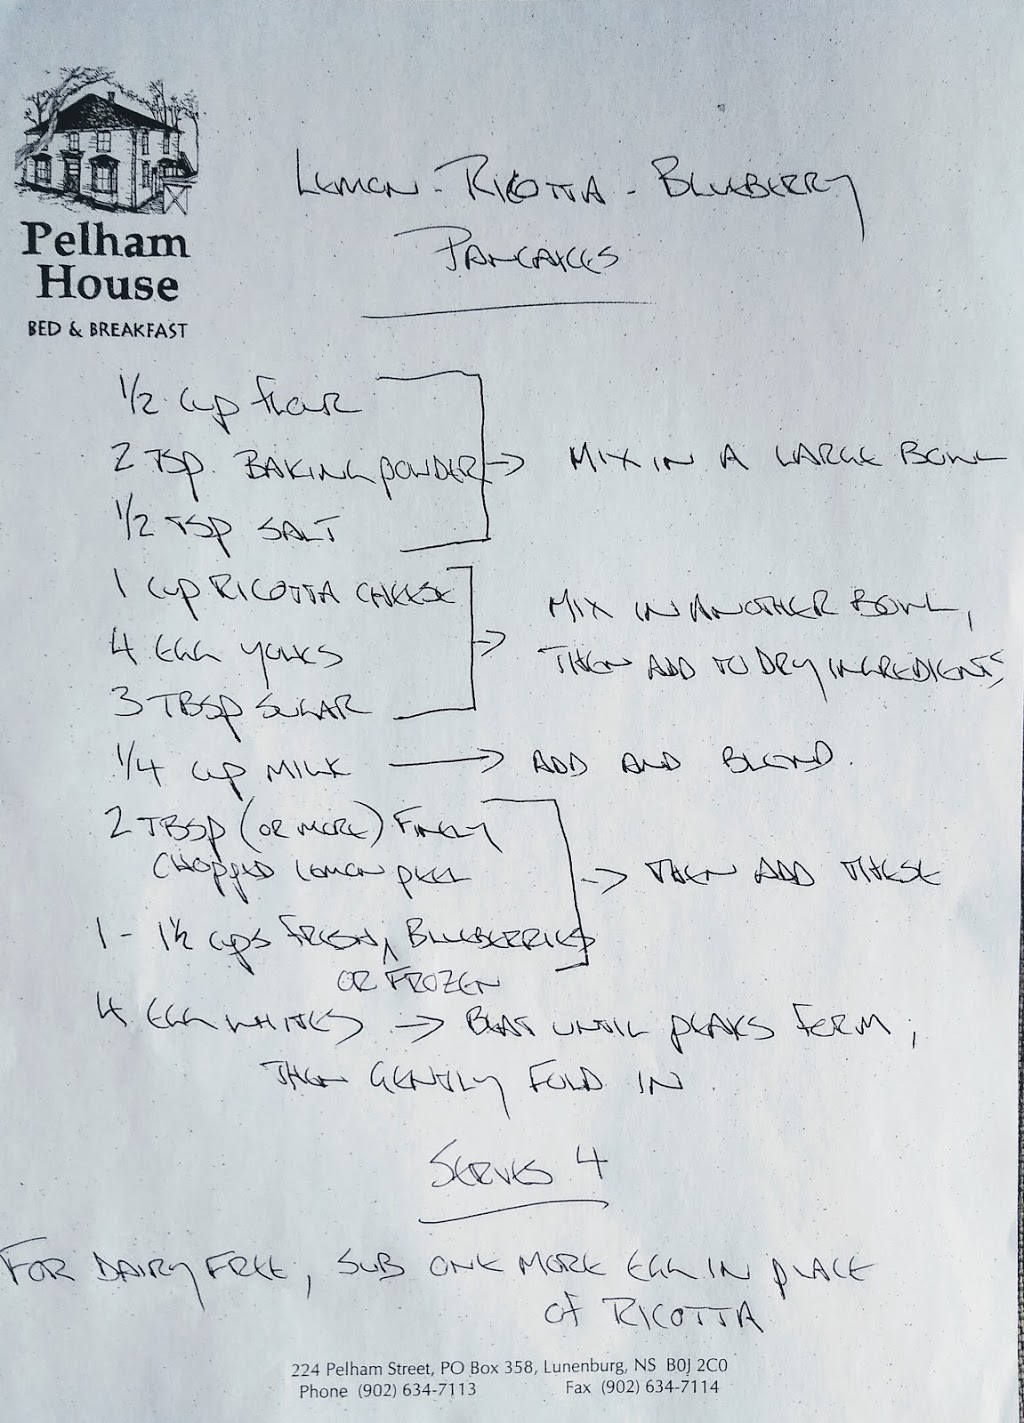 Pelham
House
BED & BREAKFAST
LEMON - RICOTTA - BLUEBERRY
PANCAKES
1/2 cup FLOUR
2 TSP. BAKING POWDER → MIX IN A LARGE BOWL
1/2 TSP SALT
1 cup RICOTTA CHEESE
4 EGG YOLKS → MIX IN ANOTHER BOWL,
THEN ADD TO DRY INGREDIENTS
3 TBSP SUGAR
1/4 cup MILK → ADD AND BLEND.
2 TBSP (OR MORE) FINELY
CHOPPED LEMON PEEL → THEN ADD THESE
1 - 1½ cups FRESH ^ BLUEBERRIES
OR FROZEN
4 EGG WHITES → BEAT UNTIL PEAKS FORM,
THEN GENTLY FOLD IN.
SERVES 4
FOR DAIRY FREE, SUB ONE MORE EGG IN PLACE
OF RICOTTA
224 Pelham Street, PO Box 358, Lunenburg, NS B0J 2C0
Phone (902) 634-7113 Fax (902) 634-7114